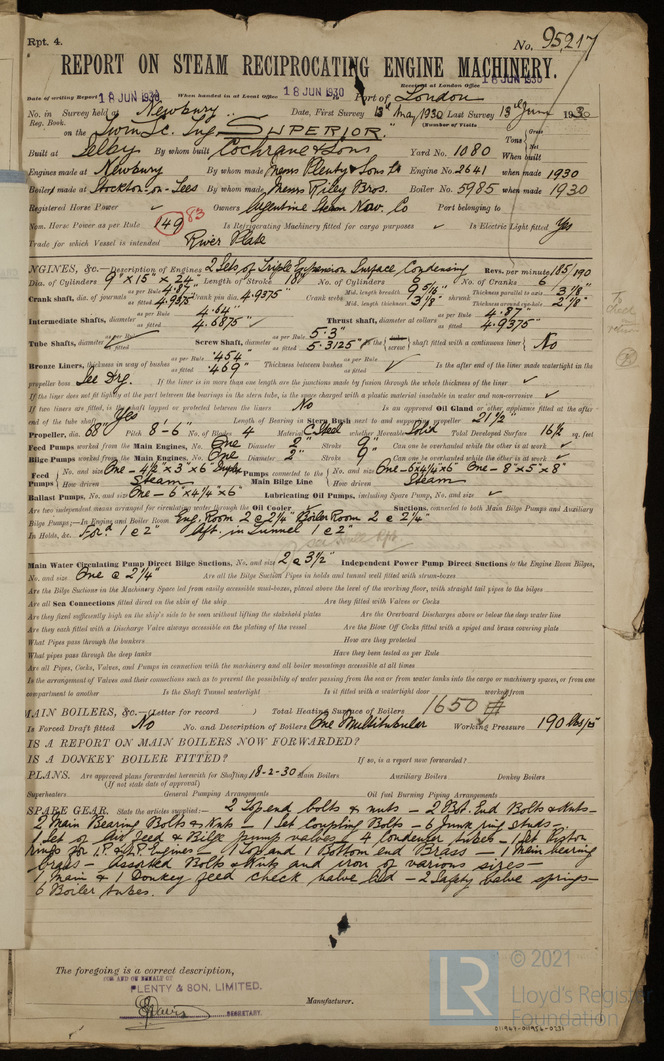 Rpt. 4.
No. 95,217
REPORT ON STEAM RECIPROCATING ENGINE MACHINERY.
Received at London Office 18 JUN 1930
Date of writing Report 18 JUN 1930 When handed in at Local Office 18 JUN 1930 Port of London
No. in Survey held at Newbury Date, First Survey May 1930 Last Survey 13th June 1930
Reg. Book. (Number of Visits
on the Twin Sc. Tug "SUPERIOR." Tons Gross Net
Built at Selby By whom built Cochrane & Sons Yard No. 1080 When built
Engines made at Newbury By whom made Messrs Plenty & Sons Ld Engine No. 2641 when made 1930
Boilers made at Stockton-on-Tees By whom made Messrs Riley Bros. Boiler No. 5985 when made 1930
Registered Horse Power Owners Argentine Steam Nav. Co Port belonging to
Nom. Horse Power as per Rule 149 83 Is Refrigerating Machinery fitted for cargo purposes Is Electric Light fitted Yes
Trade for which Vessel is intended River Plate
ENGINES, &c.—Description of Engines 2 Sets of Triple Expansion Surface Condensing Revs. per minute 185/190
Dia. of Cylinders 9" x 15" x 24" Length of Stroke 18" No. of Cylinders No. of Cranks 6
Crank shaft, dia. of journals as per Rule 4.87" as fitted 4.9375" Crank pin dia. 4.9375" Crank webs Mid. length breadth 9 5/8" Mid. length thickness 3 1/8" shrunk Thickness parallel to axis 3 1/8" Thickness around eye-hole 2 1/8"
Intermediate Shafts, diameter as per Rule 4.64" as fitted 4.6875" Thrust shaft, diameter at collars as per Rule 4.87" as fitted 4.9375"
Tube Shafts, diameter as per Rule as fitted Screw Shaft, diameter as per Rule 5.3" as fitted 5.3125" Is the tube screw shaft fitted with a continuous liner No
Bronze Liners, thickness in way of bushes as per Rule .454" as fitted .469" Thickness between bushes as per Rule as fitted Is the after end of the liner made watertight in the
propeller boss See Drg. If the liner is in more than one length are the junctions made by fusion through the whole thickness of the liner
If the liner does not fit tightly at the part between the bearings in the stern tube, is the space charged with a plastic material insoluble in water and non-corrosive
If two liners are fitted, is the shaft lapped or protected between the liners No Is an approved Oil Gland or other appliance fitted at the after
end of the tube shaft Yes Length of Bearing in Stern Bush next to and supporting propeller 21 1/2"
Propeller, dia. 68" Pitch 8'-6" No. of Blades 4 Material C. Steel whether Moveable Solid Total Developed Surface 16 1/2 sq. feet
Feed Pumps worked from the Main Engines, No. One Diameter 2" Stroke 9" Can one be overhauled while the other is at work
Bilge Pumps worked from the Main Engines, No. One Diameter 2" Stroke 9" Can one be overhauled while the other is at work
Feed Pumps No. and size One - 4 1/2" x 3" x 6" Duplex How driven Steam Pumps connected to the Main Bilge Line No. and size One - 6 x 4 1/4 x 6" One - 8" x 5" x 8" How driven Steam
Ballast Pumps, No. and size One - 6" x 4 1/4" x 6" Lubricating Oil Pumps, including Spare Pump, No. and size
Are two independent means arranged for circulating water through the Oil Cooler Suctions, connected to both Main Bilge Pumps and Auxiliary
Bilge Pumps;—In Engine and Boiler Room Eng. Room 2 @ 2 1/4" Boiler Room 2 @ 2 1/4"
In Holds, &c. For'd 1 @ 2" Aft. in Tunnel 1 @ 2"
Main Water Circulating Pump Direct Bilge Suctions, No. and size 2 @ 3 1/2" Independent Power Pump Direct Suctions to the Engine Room Bilges,
No. and size One @ 2 1/4" Are all the Bilge Suction Pipes in holds and tunnel well fitted with strum-boxes
Are the Bilge Suctions in the Machinery Space led from easily accessible mud-boxes, placed above the level of the working floor, with straight tail pipes to the bilges
Are all Sea Connections fitted direct on the skin of the ship Are they fitted with Valves or Cocks
Are they fixed sufficiently high on the ship's side to be seen without lifting the stokehold plates Are the Overboard Discharges above or below the deep water line
Are they each fitted with a Discharge Valve always accessible on the plating of the vessel Are the Blow Off Cocks fitted with a spigot and brass covering plate
What Pipes pass through the bunkers How are they protected
What pipes pass through the deep tanks Have they been tested as per Rule
Are all Pipes, Cocks, Valves, and Pumps in connection with the machinery and all boiler mountings accessible at all times
Is the arrangement of Valves and their connections such as to prevent the possibility of water passing from the sea or from water tanks into the cargo or machinery spaces, or from one
compartment to another Is the Shaft Tunnel watertight Is it fitted with a watertight door worked from
MAIN BOILERS, &c.—(Letter for record ) Total Heating Surface of Boilers 1650
Is Forced Draft fitted No No. and Description of Boilers One Multitubular Working Pressure 190 lbs/□"
IS A REPORT ON MAIN BOILERS NOW FORWARDED?
IS A DONKEY BOILER FITTED? If so, is a report now forwarded?
PLANS. Are approved plans forwarded herewith for Shafting 18-2-30 Main Boilers Auxiliary Boilers Donkey Boilers
(If not state date of approval)
Superheaters General Pumping Arrangements Oil fuel Burning Piping Arrangements
SPARE GEAR. State the articles supplied:— 2 Top end bolts & nuts - 2 Bot. End Bolts & Nuts -
2 Main Bearing Bolts & Nuts - 1 Set Coupling Bolts - 6 Junk ring studs -
1 Set of Feed & Bilge pump valves, 4 condenser tubes - 1 Set Piston
rings for - 1 Top end 1 Bottom end Brass - 1 Main bearing
brass - Assorted Bolts & Nuts and iron of various sizes -
1 Main & 1 Donkey feed check valve lid - 2 Safety valve springs -
6 Boiler tubes.
The foregoing is a correct description,
FOR AND ON BEHALF OF
PLENTY & SON, LIMITED.
SECRETARY. Manufacturer.
© 2021
LR Lloyd's Register
Foundation
011967-011976-0231